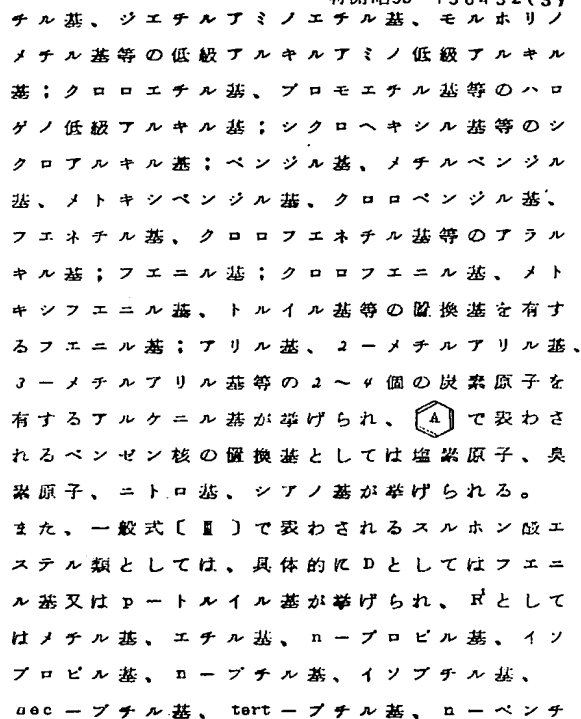 特開昭50-130432(3)
チル基、ジエチルアミノエチル基、モルホリノ
メチル基等の低級アルキルアミノ低級アルキル
基；クロロエチル基、ブロモエチル基等のハロ
ゲノ低級アルキル基；シクロヘキシル基等のシ
クロアルキル基；ベンジル基、メチルベンジル
基、メトキシベンジル基、クロロベンジル基、
フエネチル基、クロロフエネチル基等のアラル
キル基；フエニル基；クロロフエニル基、メト
キシフエニル基、トルイル基等の置換基を有す
るフエニル基；アリル基、2－メチルアリル基、
3－メチルアリル基等の2～4個の炭素原子を
有するアルケニル基が挙げられ、Aで表わさ
れるベンゼン核の置換基としては塩素原子、臭
素原子、ニトロ基、シアノ基が挙げられる。
また、一般式〔Ⅲ〕で表わされるスルホン酸エ
ステル類としては、具体的にDとしてはフエニ
ル基又はp－トルイル基が挙げられ、R¹として
はメチル基、エチル基、n－プロピル基、イソ
プロピル基、n－ブチル基、イソブチル基、
sec－ブチル基、tert－ブチル基、n－ペンチ